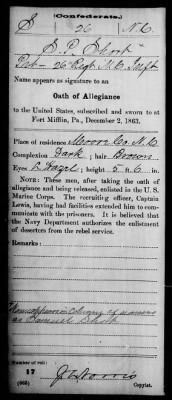 (Confederate.)
S 26 N.C.
S. P. Short
Pvt 26 Reg't N.C. Inft
Name appears as signature to an
Oath of Allegiance
to the United States, subscribed and sworn to at
Fort Mifflin, Pa., December 2, 1863.
Place of residence Moore Co. N.C.
Complexion Dark; hair Brown
Eyes Hazel; 5 ft. 6 in.
NOTE: These men, after taking the oath of
allegiance and being released, enlisted in the U. S.
Marine Corps. The recruiting officer, Captain
Lewis, having had facilities extended him to com-
municate with the prisoners. It is believed that
the Navy Department authorizes the enlistment
of deserters from the rebel service.
Remarks:
Name appears in column of
as Short
Number of roll:
17
(663) Copyist.